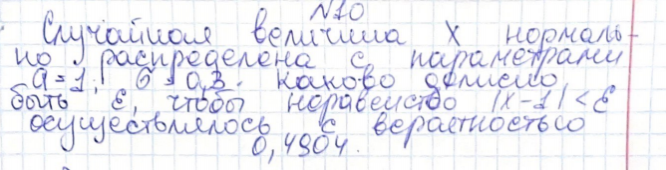 №10
Случайная величина X нормаль-
но распределена с параметрами
a=1; σ=0,3. Каково должно
быть ε, чтобы неравенство |x-1|<ε
осуществлялось с вероятностью
0,4904.